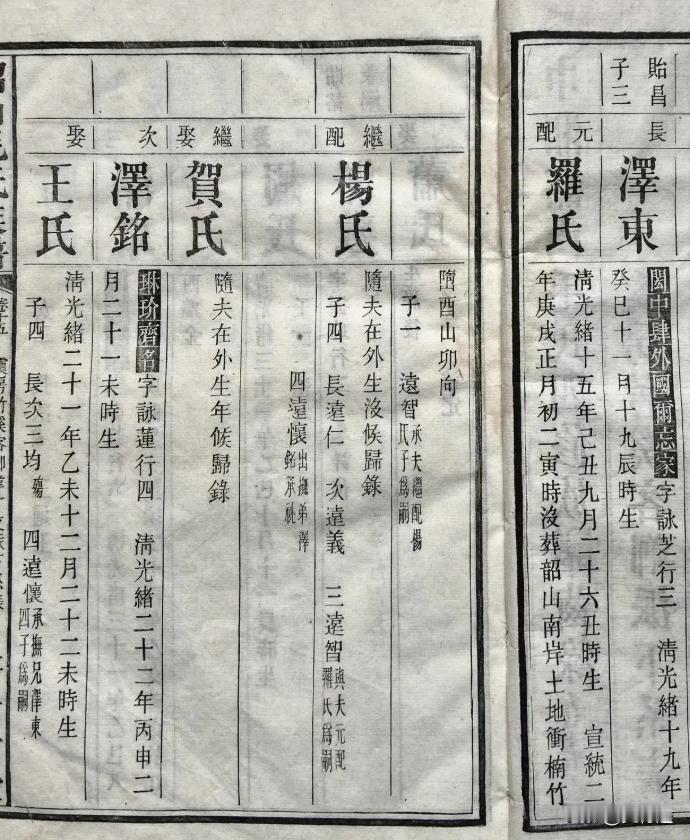 貽昌
子三
長
澤東
閎中肆外國術志家 字詠芝行三 清光緒十九年
癸巳十一月十九辰時生
元配
羅氏
清光緒十五年己丑九月二十六丑時生 宣統二
年庚戌正月初二寅時沒葬韶山南岸土地衝楠竹
墮酉山卯向
子一 遠智 承夫繼配楊
氏子爲嗣
繼配
楊氏
隨夫在外生沒候歸錄
子四 長遠仁 次遠義 三遠智 與夫元配
羅氏爲嗣
四遠懷 出撫弟澤
銘承祧
繼娶
賀氏
隨夫在外生年候歸錄
次
澤銘
琳玠齊名 字詠蓮行四 清光緒二十二年丙申二
月二十一未時生
娶
王氏
清光緒二十一年乙未十二月二十二未時生
子四 長次三均殤 四遠懷 承撫兄澤東
四子爲嗣
氏族譜
卷十五